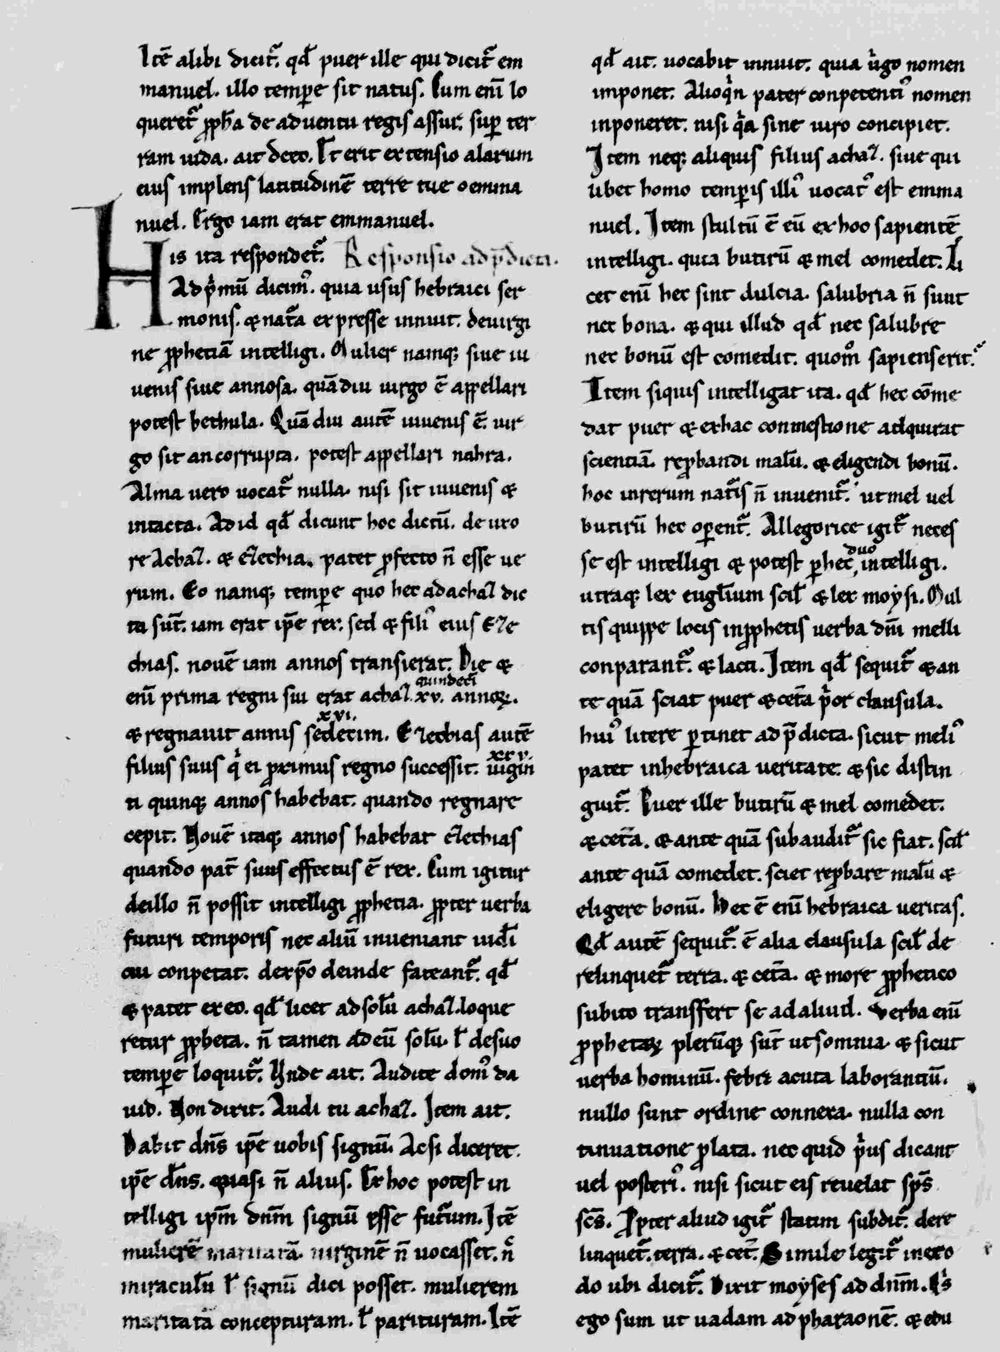 Itē alibi dicit᷑. qđ puer ille qui dicit᷑ em
manuel. illo tempe sit natus. Cum eni lo
queret᷑ ꝓph̄a de aduentu regis assur. sup ter
ram iuda. ait d̄eo. Et erit extensio alarum
eius implens latitudinē terre tue o emma
nuel. Ergo iam erat emmanuel.
His ita respondet᷑. Responsio ad p̄dicta.
Ad p̄mū dicim᷒. quia usus hebraici ser
monis. & nat᷑a expresse innuit. de uirgi
ne ꝓphetiā intelligi. Mulier namq; siue iu
uenis siue annosa. quādiu uirgo ē appellari
potest bethula. Quādiu autē iuuenis ē. uir
go sit an corrupta. potest appellari nahra.
Alma uero uocat᷑ nulla. nisi sit iuuenis &
intacta. Ad id qđ dicunt hoc dictū. de uxo
re Achaz. & Ezechia. patet ꝓfecto n̄ esse ue
rum. Eo namq; tempe quo hec ad achaz dic
ta sūt. iam erat ip̄e rex. sed & fili᷒ eius Eze
chias. nouē iam annos transierat. Die &
eni prima regni sui erat achaz. quindeci xv. annoꝝ.
& regnauit annis xvi. sedecim. Ezechias autē
filius suus q̇ ei primus regno successit. xxv. uigin
ti quinq; annos habebat. quando regnare
cepit. Nouē itaq; annos habebat ezechias
quando pat̄ suus effectus ē rex. Cum igitur
de illo n̄ possit intelligi ꝓphetia. ꝓpter uerba
futuri temporis nec aliū inueniant iudei
cui conpetat. de xp̄o deinde fateant᷑. qđ
& patet ex eo. qđ licet ad solū achaz. loque
retur ꝓpheta. n̄ tamen ad eū solū. ł de suo
tempe loquit᷑. Unde ait. Audite dom᷒ da
uid. Non dixit. Audi tu achaz. Item ait.
Dabit dn̄s ip̄e uobis signū. Acsi diceret.
ip̄e dn̄s. quasi n̄ alius. Ex hoc potest in
telligi ip̄m dnm̄ signū esse futurum. Itē
mulierē maritatā. uirginē n̄ uocasset. n̄
miraculū ł signū dici posset. mulierem
maritatā concepturam. ł parituram. Itē
qđ ait. uocabit innuit. quia u̇go nomen
imponet. Alioq̇n pater conpetenti᷒ nomen
inponeret. nisi q̇a sine uiro concipiet.
Item neq; aliquis filius achaz. siue qui
libet homo temporis illi᷒ uocat᷒ est emma
nuel. Item stultū ē eū ex hoc sapientē
intelligi. quia butirū & mel comedet. Li
cet eni hec sint dulcia. salubria n̄ sunt
nec bona. & qui illud qđ nec salubre
nec bonū est comedit. quom̄ sapiens erit?
Item siquis intelligat ita. qđ hec cōme
dat puer & ex hac conmestione adquirat
scientiā. reꝓbandi malū. & eligendi bonū.
hoc in rerum nat᷑is n̄ inuenit᷑. ut mel uel
butirū hec operent᷑. Allegorice igit᷑ neces
se est intelligi & potest ꝑ hec duo intelligi.
utraq; lex euglium scił & lex moysi. Mul
tis quippe locis in ꝓphetis uerba dn̄i melli
conparant᷑. & lacti. Item qđ sequit᷑ & an
te quā sciat puer & cet̄a p̄or clausula.
hui᷒ litere ꝑtinet ad p̄dicta. sicut meli᷒
patet in hebraica ueritate. & sic distin
guit᷑. Puer ille butirū & mel comedet.
& cet̄a. & ante quā subaudit᷑ sic fiat. scił
ante quā comedet. sciet reꝓbare malū &
eligere bonū. Hec ē eni hebraica ueritas.
Qđ autē sequit᷑. ē alia clausula scił de
relinquet᷑ terra. & cet̄a. & more ꝓphetico
subito transfert se ad aliud. Verba eni
ꝓphetaꝝ plerūq; sūt ut somnia. & sicut
uerba hominū. febre acuta laborantiū.
nullo sunt ordine connexa. nulla con
tinuatione ꝓlata. nec quid p̄us dicant
uel posteri᷒. nisi sicut eis reuelat sp̄s
sc̄s. Ꝓpter aliud igit᷑ statim subdit᷑. dere
linquet᷑. terra. & cet̄. Simile legit᷑ in exo
do ubi dicit᷑. Dixit moyses ad dnm̄. Q̇s
ego sum ut uadam ad pharaonē. & edu